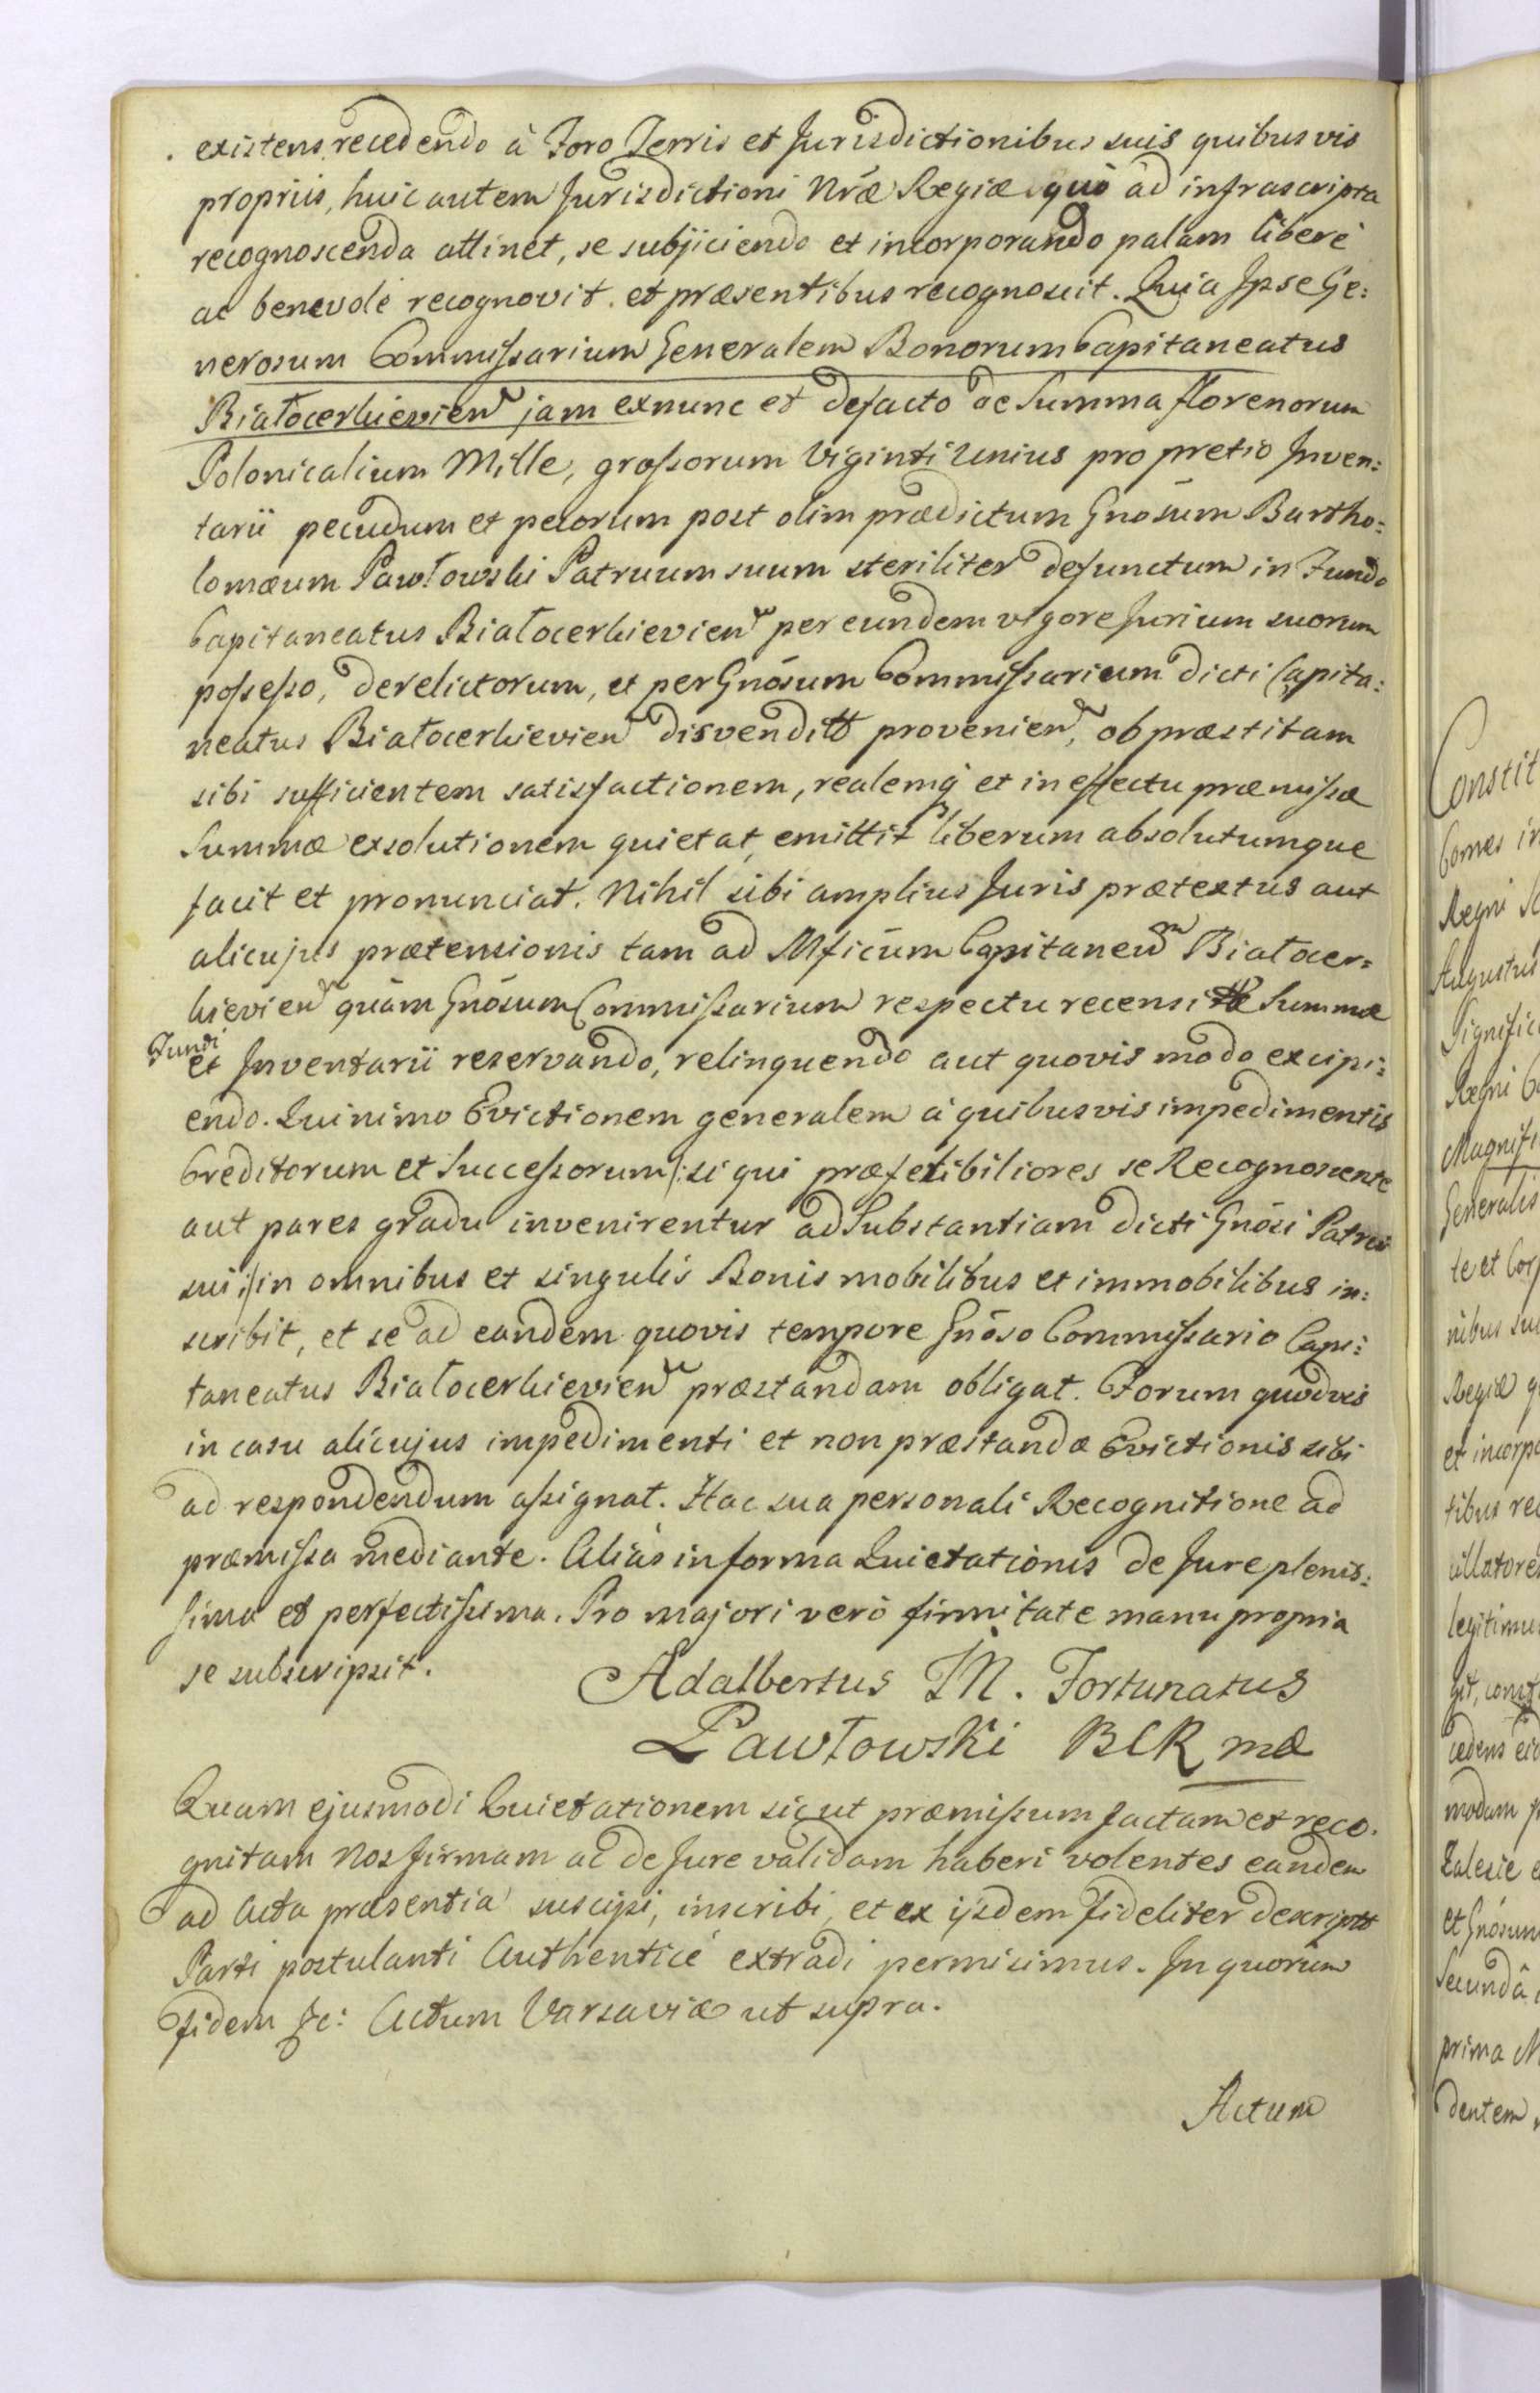 existens recedendo à Foro Terris et Jurisdictionibus suis quibusvis
propriis, huic autem Jurisdictioni Nr̃æ Regiæ quò ad infrascripta
recognoscenda attinet, se subjiciendo et incorporando palam liberè
ac benevolè recognovit et præsentibus recognoscit. Quia Ipse Ge:
nerosum Commissarium Generalem Bonorum Capitaneatus
Białocerkievieñ jam exnunc et defacto de Summa florenorum
Polonicalium Mille, grossorum Viginti Unius pro pretio Inven:
tarii pecudum et pecorum post olim prædictum Gnõsum Bartho:
lomæum Pawłowski Patruum suum steriliter defunctum in Fundo
Capitaneatus Białocerkievieñ per eundem vigore Jurium suorum
possesso, derelictorum, et per Gnõsum Commissarium dicti Capita:
neatus Białocerkievieñ disvenditt provenieñ, ob præstitam
sibi sufficientem satisfactionem, realemq̃ et in effectu præmissæ
Summæ exsolutionem quietat, emittit liberum absolutumque
facit et pronunciat. Nihil sibi amplius Juris prætextus aut
alicujus prætensionis tam ad Mficũm Capitaneũm Białocer=
kievieñ quàm Gnõsum Commissarium respectu recensittæ Summæ
Fundi
et Inventarii reservando, relinquendo aut quovis modo excipi:
endo. Quinimo Evictionem generalem à quibusvis impedimentis
Creditorum et Successorum /: si qui præferibiliores se Recognoscente
aut pares gradu invenirentur ad Substantiam dicti Gnõsi Patrui
sui :/ in omnibus et singulis Bonis mobilibus et immobilibus in:
scribit, et se ad eandem quovis tempore Gnõso Commissario Capi:
taneatus Białocerkievieñ præstandam obligat. Forum quodvis
in casu alicujus impedimenti et non præstandæ Evictionis sibi
ad respondendum assignat. Hac sua personali Recognitione ad
præmissa mediante. Aliàs in forma Quietationis de Jure plenis:
sima et perfectissima. Pro majori verò firmitate manu propria
se subscripsit. Adalbertus M. Fortunatus
Pawłowski BCR mõ
Quam ejusmodi Quietationem sicut præmissum factam et reco.
gnitam Nos firmam ac de Jure validam haberi volentes eandem
ad Acta præsentia suscipi, inscribi, et ex ijsdem fideliter descriptt
Parti postulanti Authenticè extradi permisimus. In quorum
fidem &c: Actum Varsaviæ ut supra.
Actum
Constit
Comes in
Regni
Augustus
Regni
Generalis
te et
nibus su
Regiæ q
et incorpo
tibus rec
legitimu
cedens
modum
Zalesie
et Gnõsum
Secundâ
prima
dentem